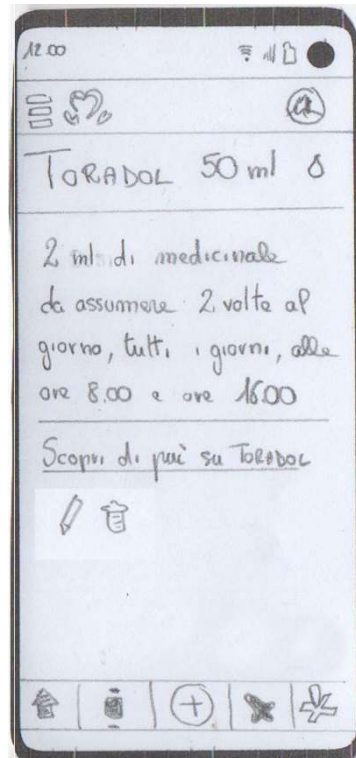 12.00
@
TORADOL 50 ml
2 ml di medicinale
da assumere 2 volte al
giorno, tutti i giorni, alle
ore 8.00 e ore 16.00
Scopri di più su TORADOL